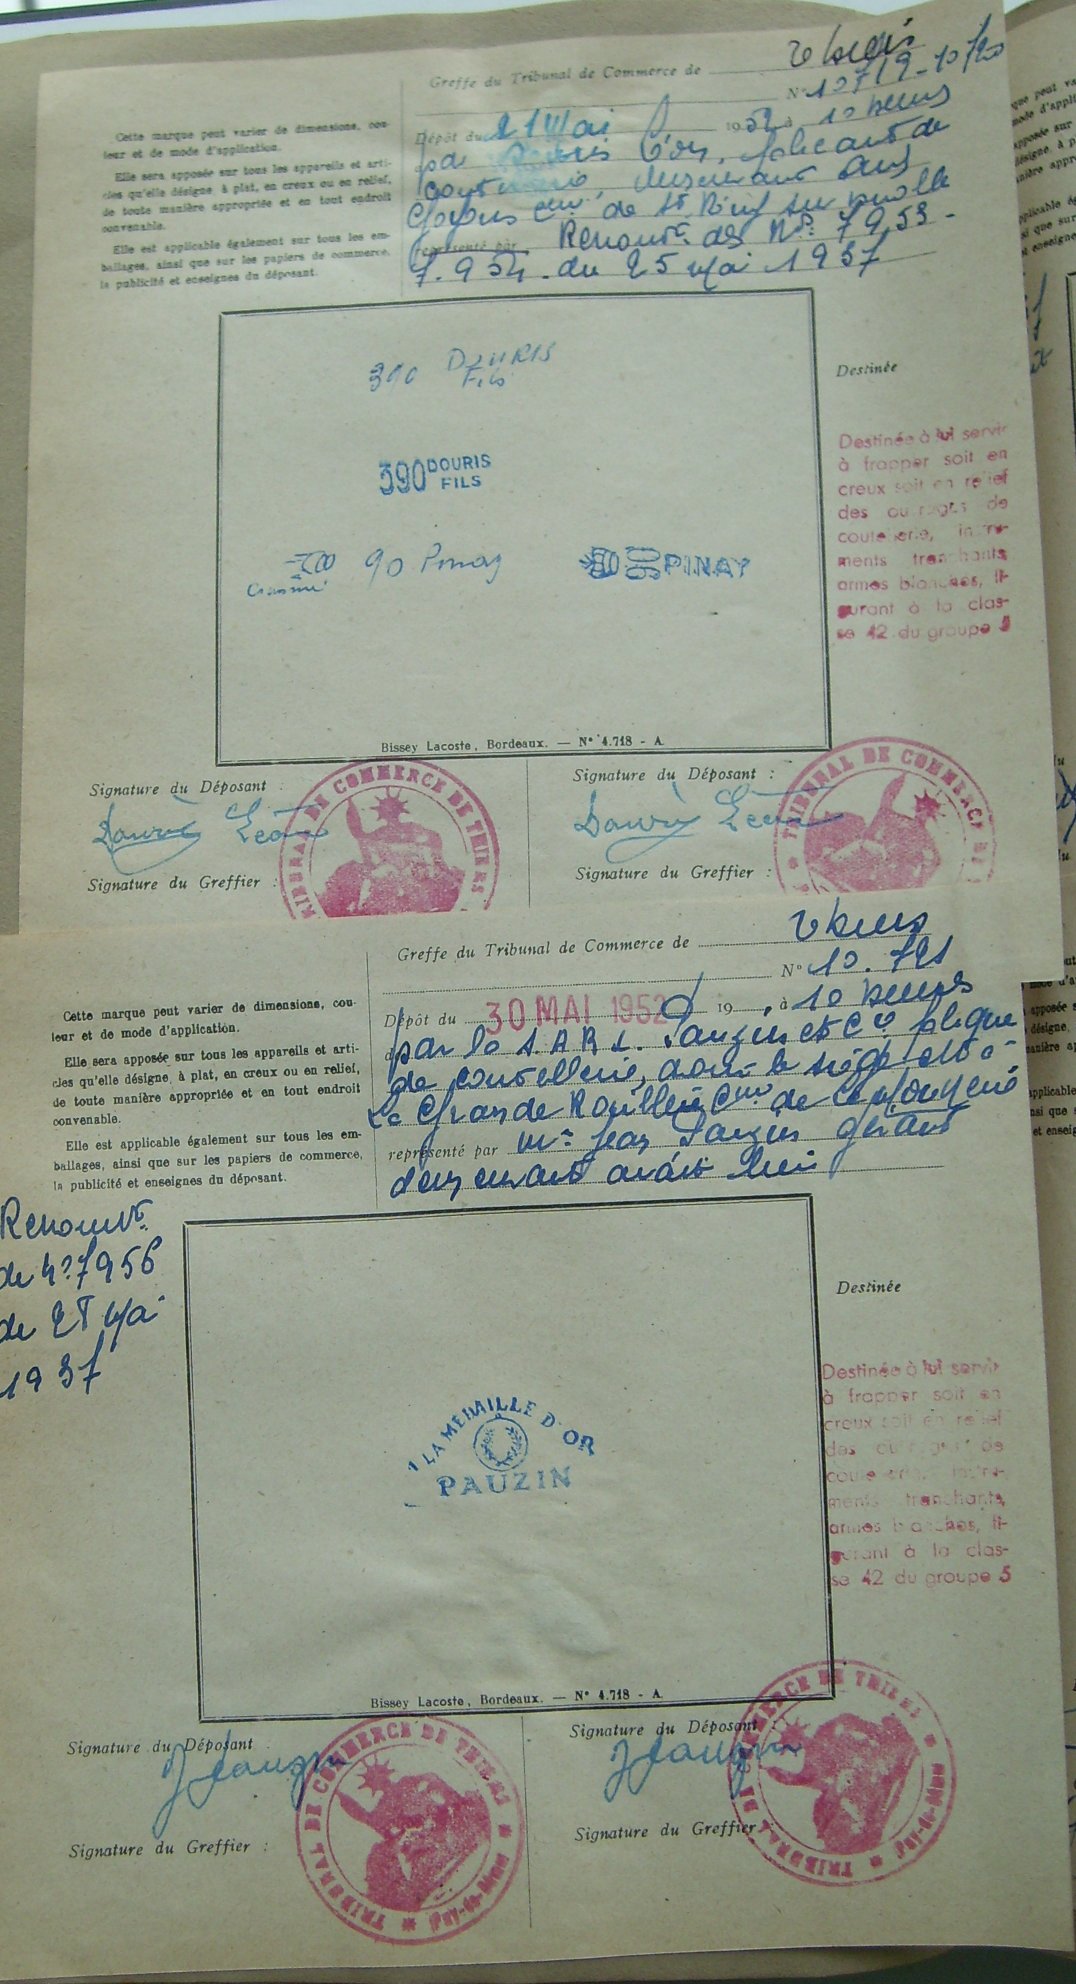 Greffe du Tribunal de Commerce de Thiers
N° 10719-10720
Dépôt du 21 Mai 1952 à 10 heures
Cette marque peut varier de dimensions, cou-
leur et de mode d'application.
Elle sera apposée sur tous les appareils et arti-
cles qu'elle désigne à plat, en creux ou en relief,
de toute manière appropriée et en tout endroit
convenable.
Elle est applicable également sur tous les em-
ballages, ainsi que sur les papiers de commerce,
la publicité et enseignes du déposant.
par Douris Léon, fabricant de
coutellerie, demeurant aux
de St Rémy sur Durolle
représenté par Renouvt. des Nos 7953-
7.954 du 25 Mai 1937
390 DOURIS
Fils
390 DOURIS
FILS
90 Pinay
90 PINAY
Destinée
Destinée à lui servir
à frapper soit en
creux soit en relief
des ouvrages de
coutellerie, instru-
ments tranchants,
armes blanches, fi-
gurant à la clas-
se 42 du groupe 5
Bissey Lacoste, Bordeaux. — N° 4.718 - A
Signature du Déposant :
Signature du Déposant :
Douris Léon
Douris Léon
Signature du Greffier :
Signature du Greffier :
TRIBUNAL DE COMMERCE DE THIERS
TRIBUNAL DE COMMERCE DE
Greffe du Tribunal de Commerce de Thiers
N° 10.721
Dépôt du 30 MAI 1952 19 à 10 heures
Cette marque peut varier de dimensions, cou-
leur et de mode d'application.
Elle sera apposée sur tous les appareils et arti-
cles qu'elle désigne, à plat, en creux ou en relief,
de toute manière appropriée et en tout endroit
convenable.
Elle est applicable également sur tous les em-
ballages, ainsi que sur les papiers de commerce,
la publicité et enseignes du déposant.
par la S.A.R.L. Pauzin et Cie fabrique
de coutellerie, dont le siège est à
La Grande Rouillère Cne de
représenté par Mr Jean Pauzin gérant
demeurant audit lieu
Renouvt.
du N° 7956
du 25 Mai
1937
A LA MÉDAILLE D'OR
PAUZIN
Destinée
Destinée à lui servir
à frapper soit en
creux soit en relief
des ouvrages de
coutellerie, instru-
ments tranchants,
armes blanches, fi-
gurant à la clas-
se 42 du groupe 5
Bissey Lacoste, Bordeaux. — N° 4.718 - A
Signature du Déposant :
Signature du Déposant :
J Pauzin
J Pauzin
Signature du Greffier :
Signature du Greffier :
TRIBUNAL DE COMMERCE DE THIERS
Puy-de-Dôme
TRIBUNAL DE COMMERCE DE THIERS
Puy-de-Dôme